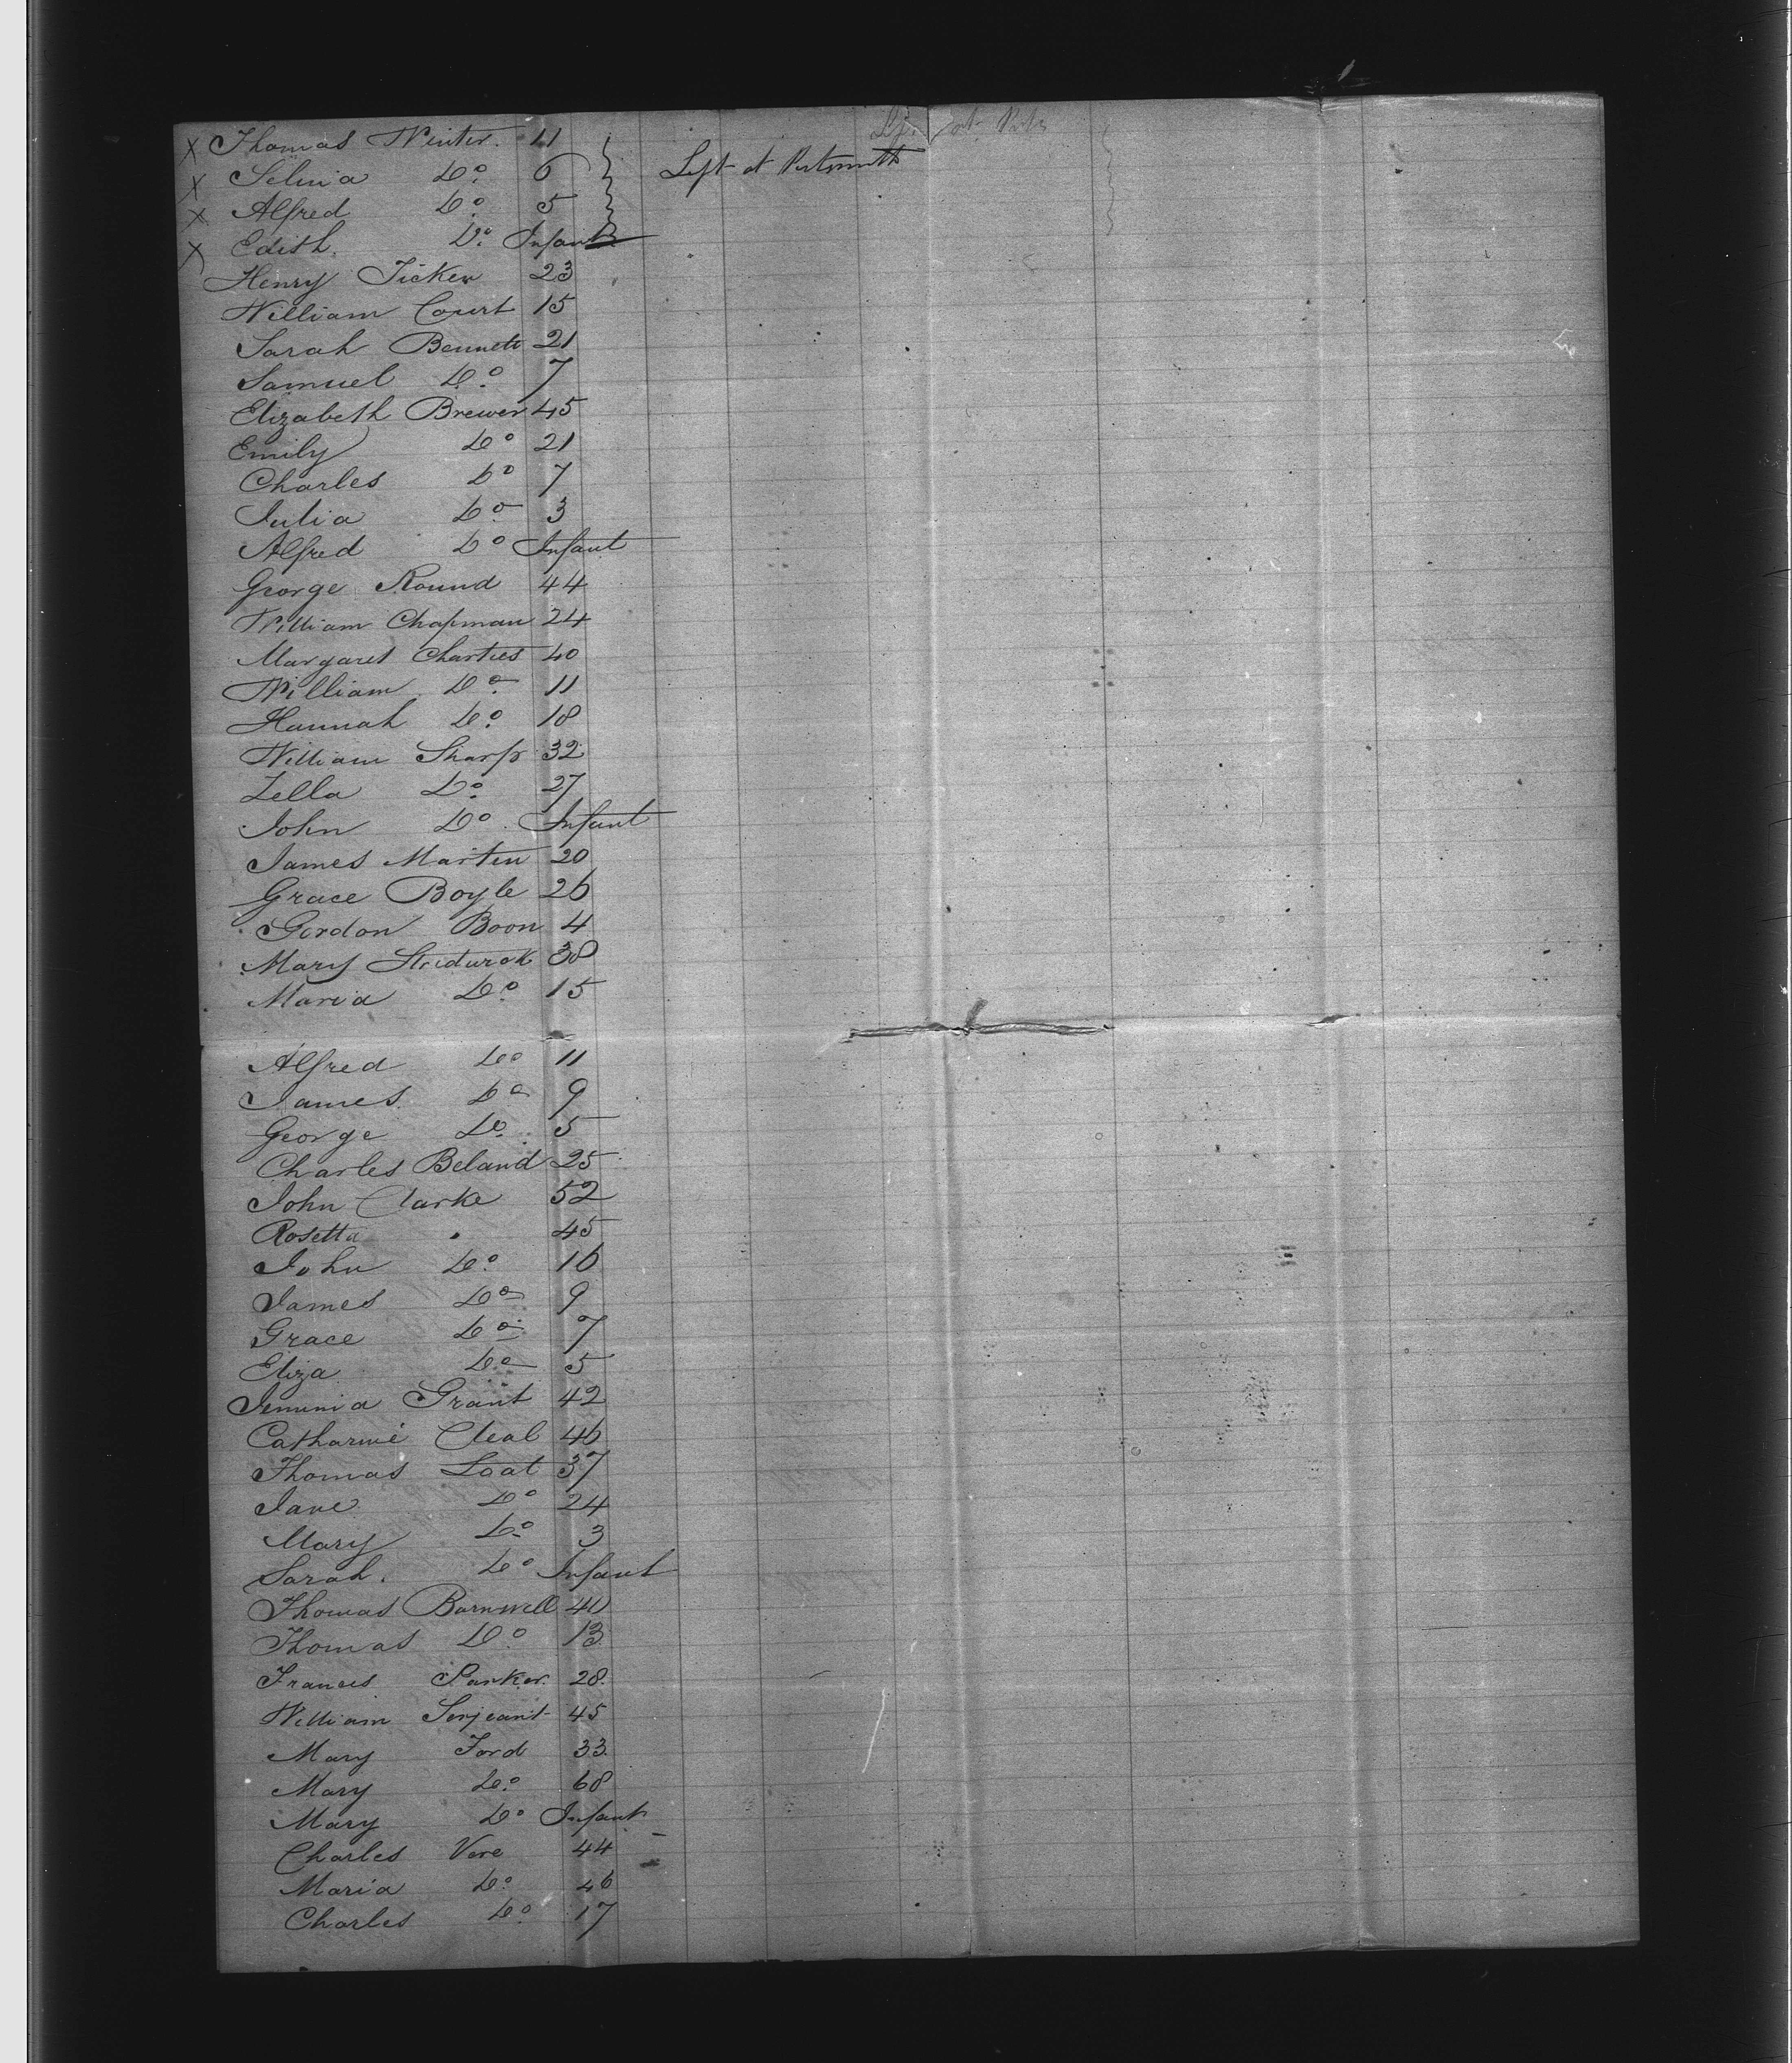 X Thomas Winter 11
X Selina Do 6 Left at Portsmouth
X Alfred Do 5
X Edith Do Infant
Henry Ticker 23
William Court 15
Sarah Bennett 21
Samuel Do 7
Elizabeth Brewer 45
Emily Do 21
Charles Do 7
Julia Do 3
Alfred Do Infant
George Round 44
William Chapman 24
Margaret Charties 40
William Do 11
Hannah Do 18
William Sharp 32
Zella Do 27
John Do Infant
James Martin 20
Grace Boyle 26
Gordon Boon 4
Mary 38
Maria Do 15
Alfred Do 11
James Do 9
George Do 5
Charles Beland 25
John Clarke 52
Rosetta 45
John Do 16
James Do 9
Grace Do 7
Eliza Do 5
Jemima Grant 42
Catharine Cleal 46
Thomas Loat 37
Jane Do 24
Mary Do 3
Sarah Do Infant
Thomas Barnwell 40
Thomas Do 13
Frances Parker 28
William Serjeant 45
Mary Ford 33
Mary Do 68
Mary Do Infant
Charles Vere 44
Maria Do 46
Charles Do 17